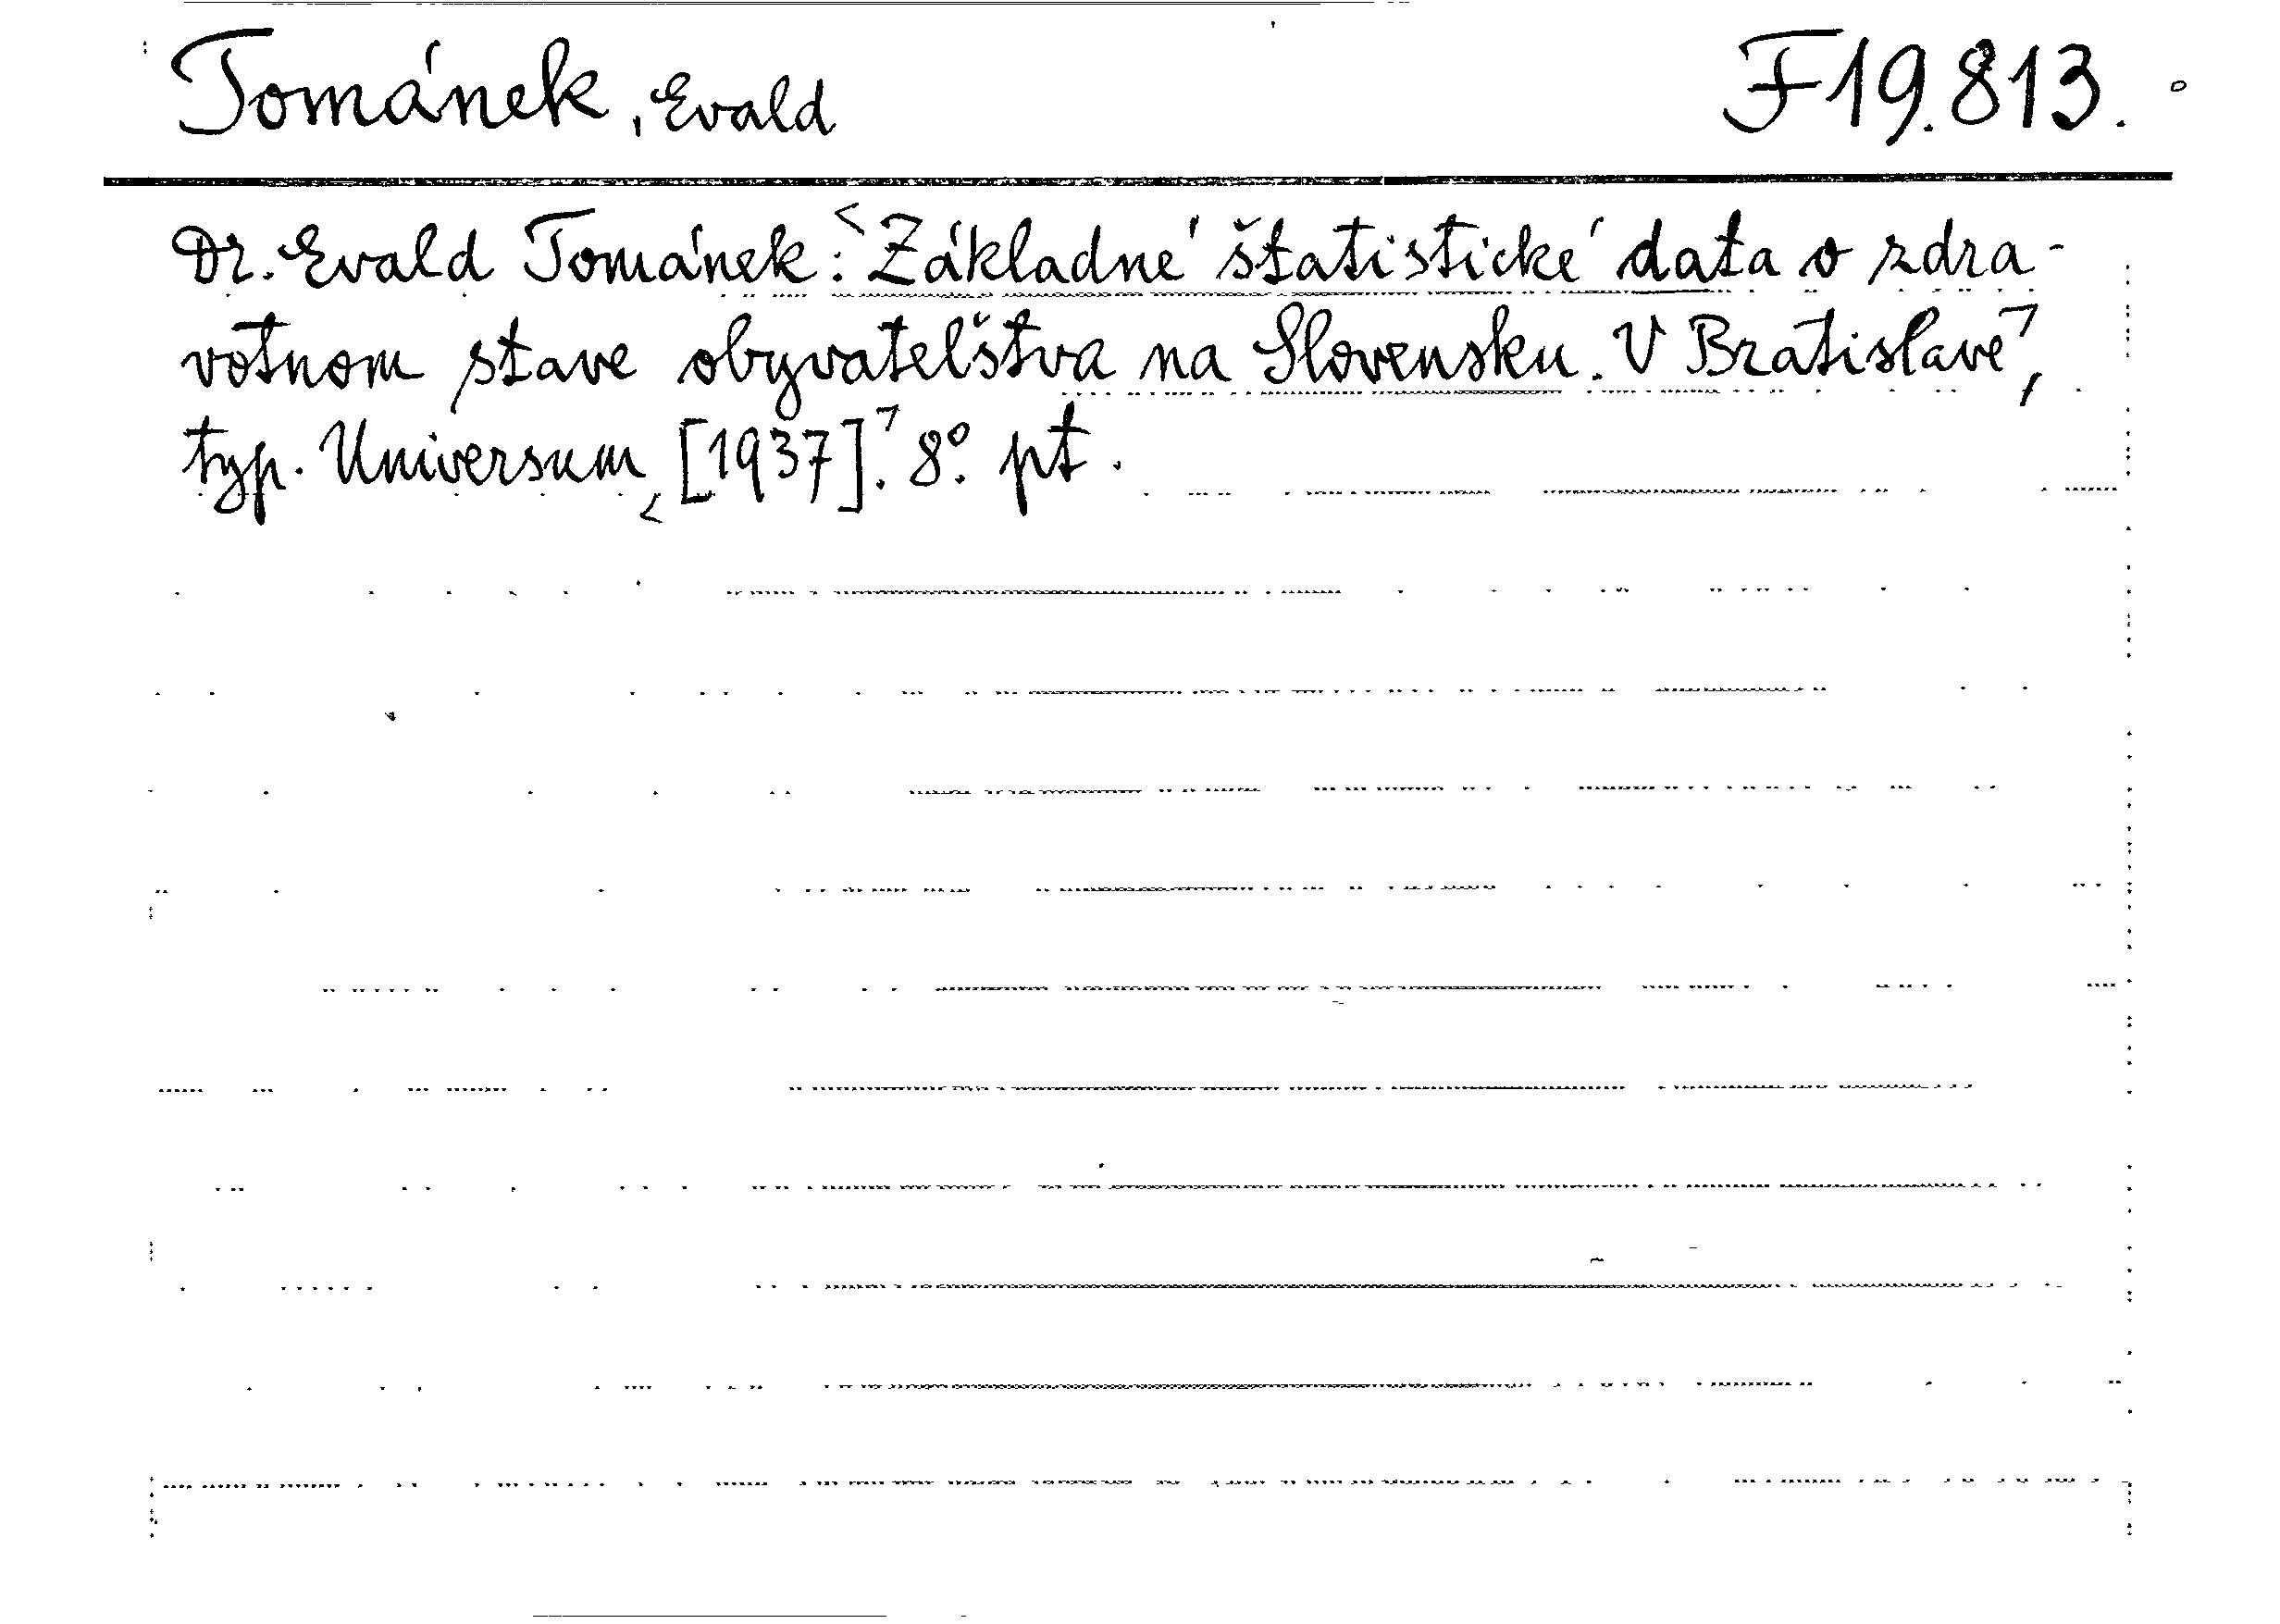 Tománek, Evald F 19.813.
Dr. Evald Tománek: Základné štatistické data o zdra-
votnom stave obyvatelštva na Slovensku. V Bratislave,
typ. Universum, [1937]. 8°. pt.